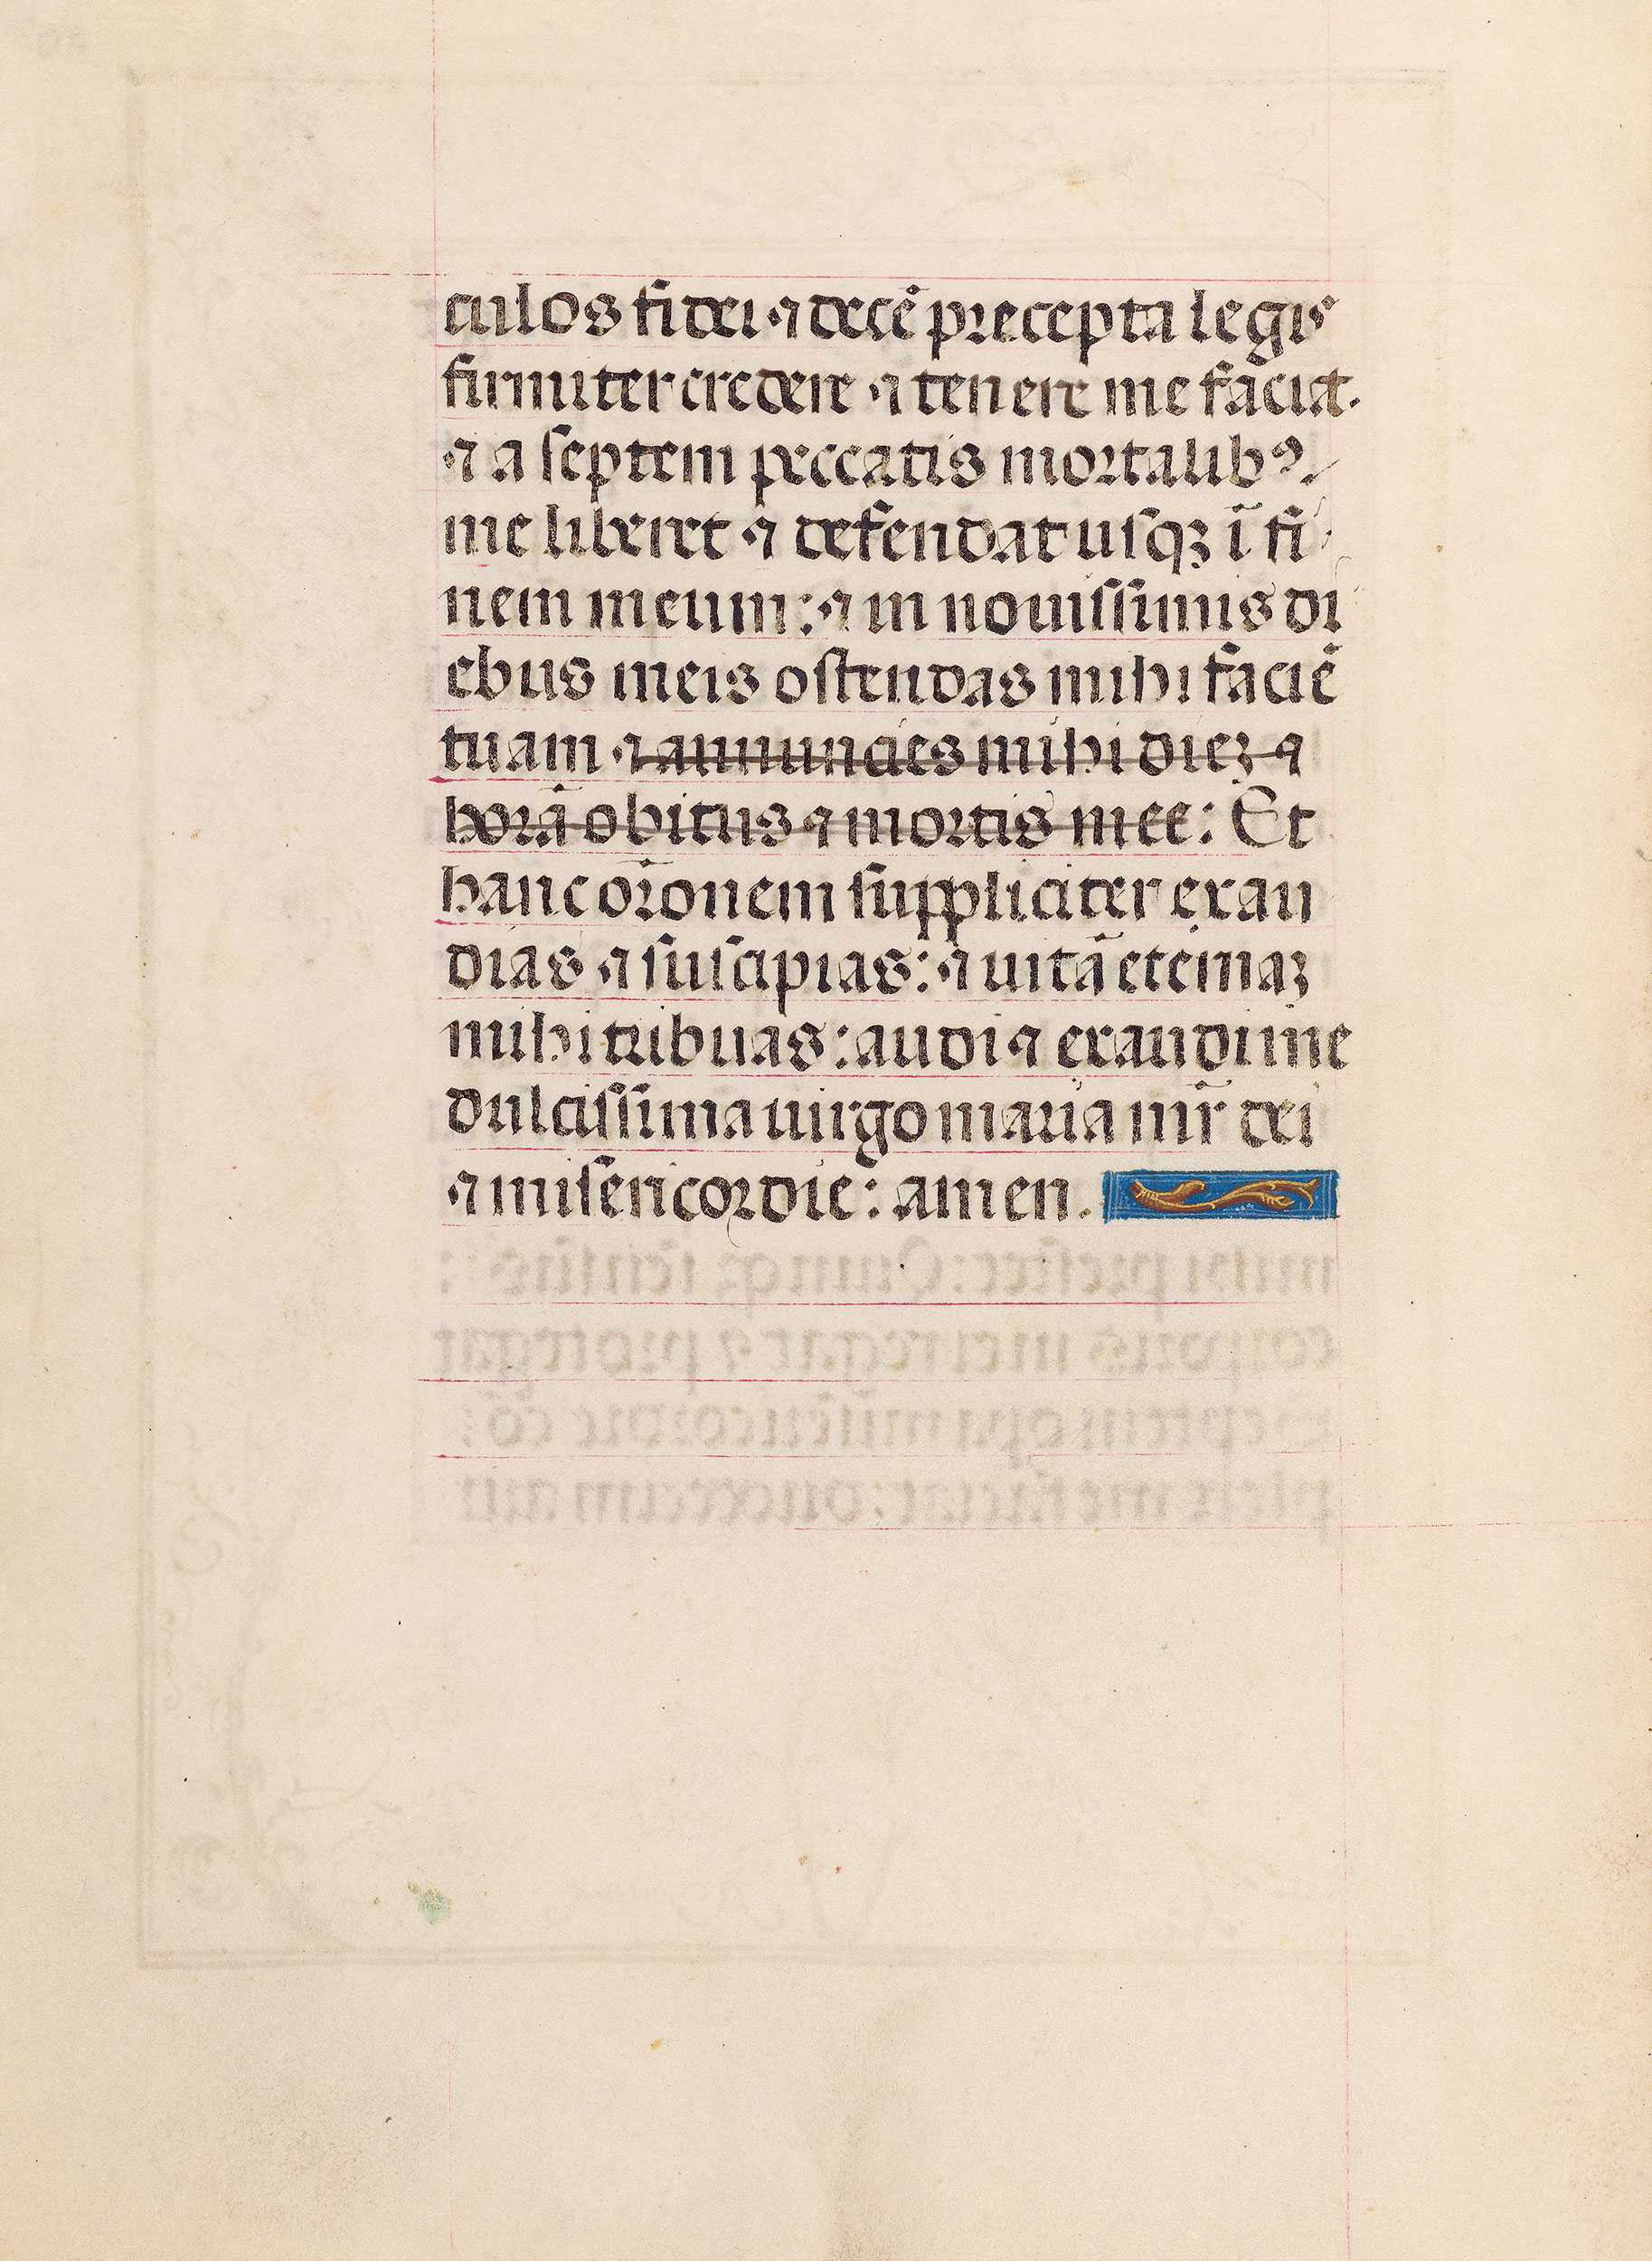 culos fidei ⁊ decē precepta legis
firmiter credere ⁊ tenere me faciat.
⁊ a septem peccatis mortalibꝰ.
me liberet ⁊ defendat usqꝫ ī fi
nem meum: ⁊ in nouissimis di
ebus meis ostendas mihi faciē
tuam ⁊ annuncies mihi dieꝫ ⁊
horā obitus ⁊ mortis mee: Et
hanc orōnem suppliciter exau
dias ⁊ suscipias: ⁊ uitā eternaꝫ
mihi tribuas: audi ⁊ exaudi me
dulcissima uirgo maria mr̄ dei
⁊ misericordie: amen.